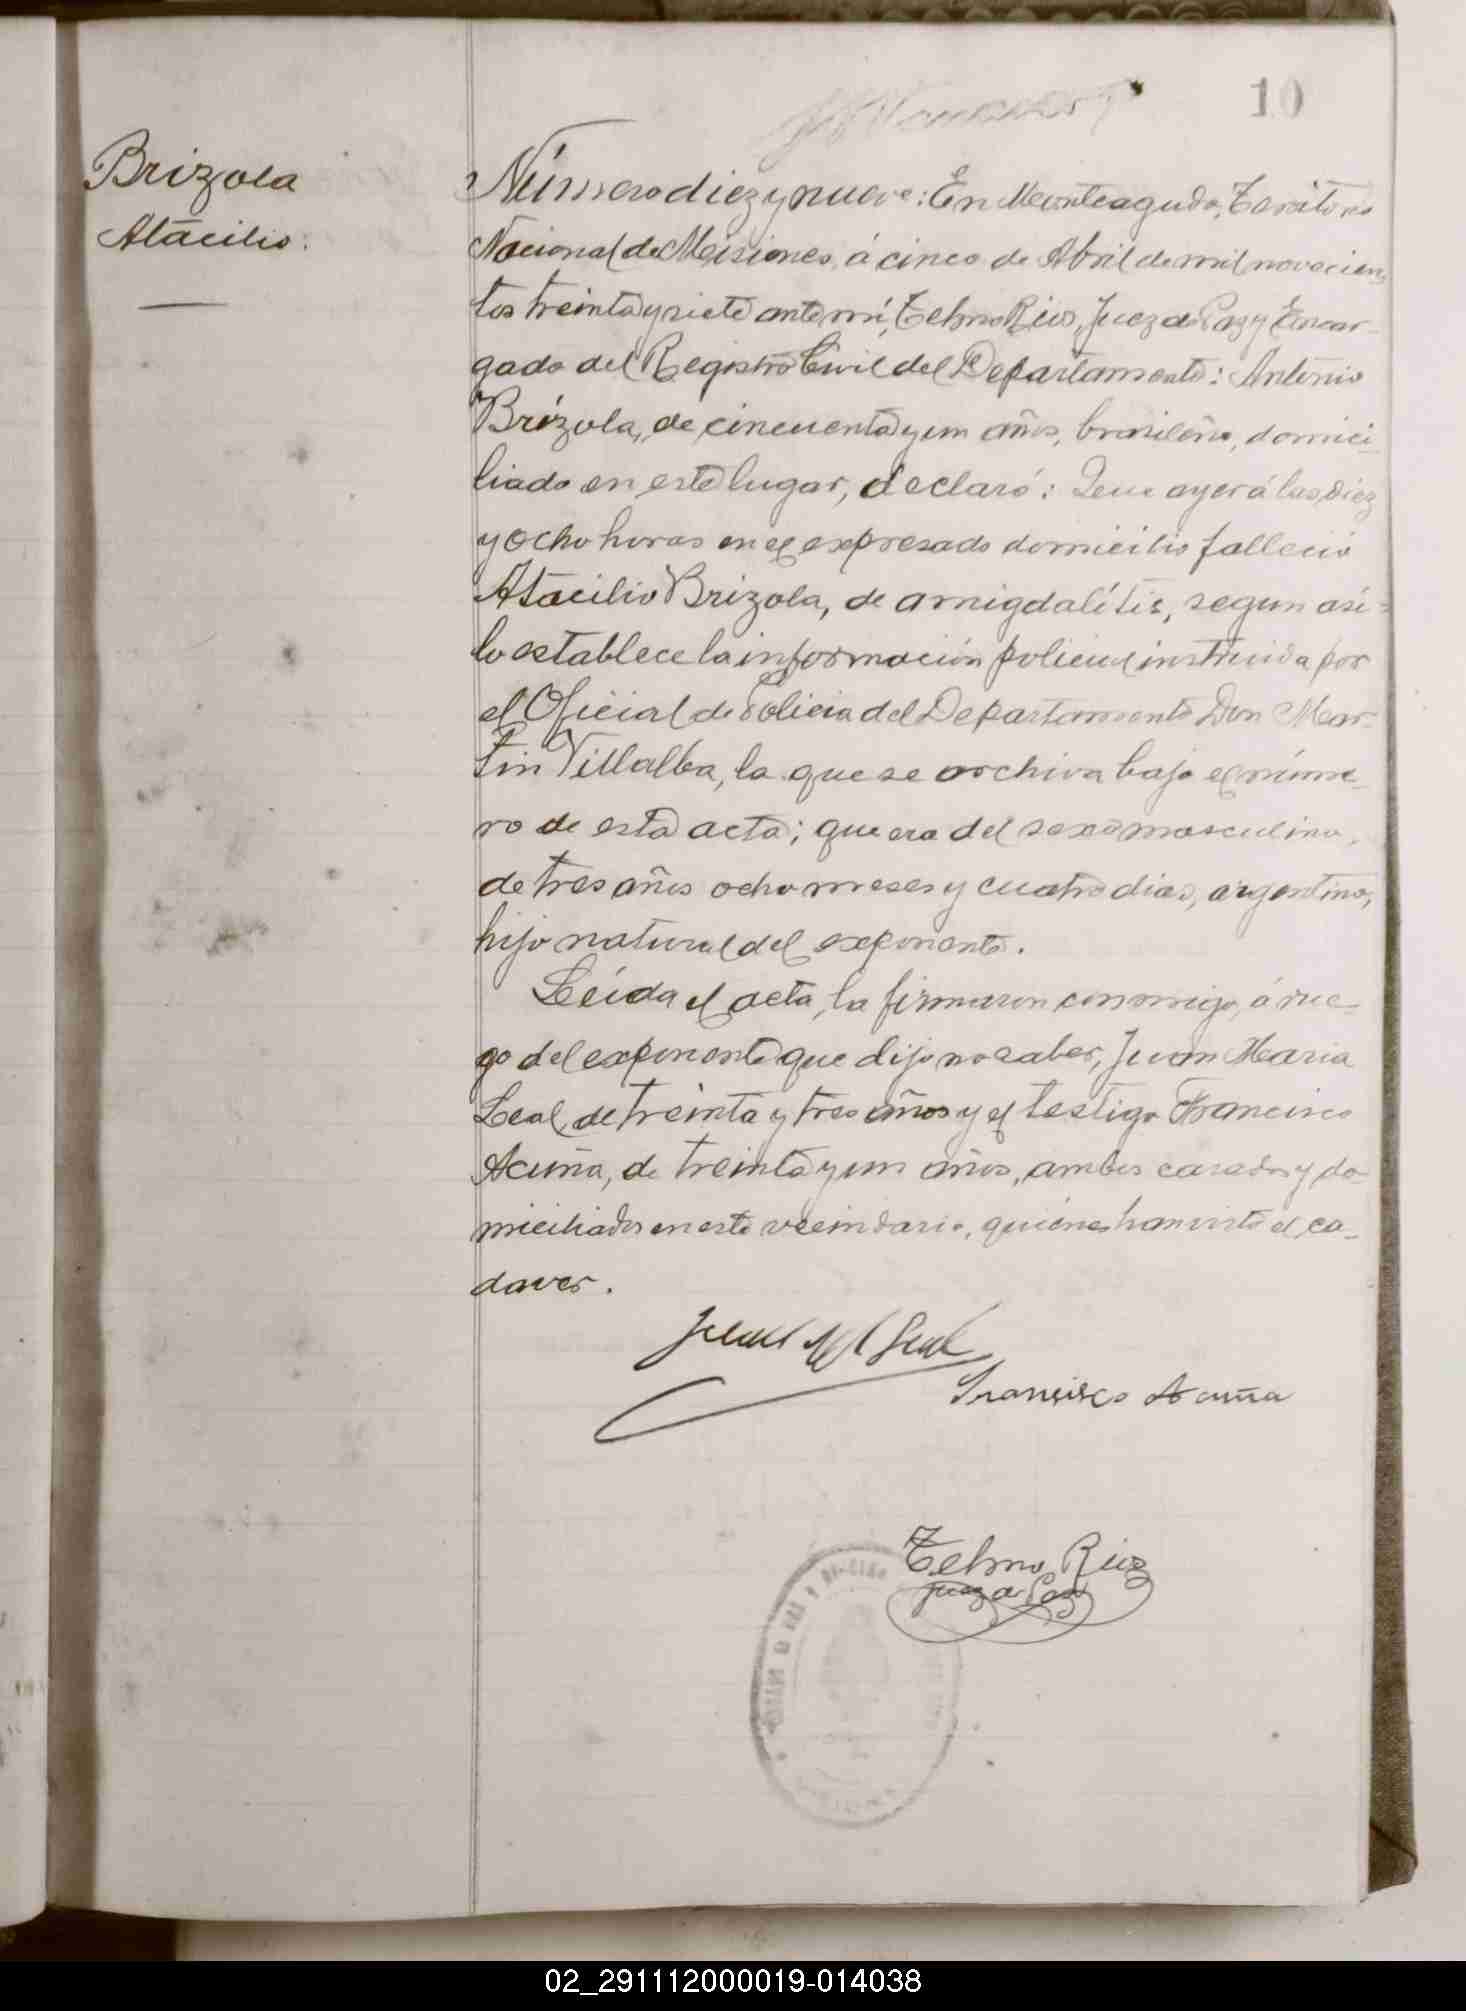 10
Brizola
Atacilio.
Número diez y nueve: En Monteagudo, Territorio
Nacional de Misiones, á cinco de Abril de mil novecien-
tos treinta y siete ante mí, Telmo Rios, Juez de Paz y Encar-
gado del Registro Civil del Departamento: Antonio
Brizola, de cincuenta y un años, brasileño, domici-
liado en este lugar, declaró: Que ayer á las diez
y ocho horas en el expresado domicilio falleció
Atacilio Brizola, de amigdalítis, segun asi
lo establece la información policial instruida por
el Oficial de Policia del Departamento Don Mar-
tin Villalba, la que se archiva bajo el núme-
ro de esta acta; que era del sexo masculino,
de tres años ocho meses y cuatro dias, argentino,
hijo natural del exponente.
Leída el acta, la firmaron conmigo, á rue-
go del exponente que dijo no saber, Juan Maria
Leal, de treinta y tres años y el testigo Francisco
Acuña, de treinta y un años, ambos casados y do-
miciliados en este vecindario, quiénes han visto el ca-
daver.
Juan M Leal
Francisco Acuña
Telmo Rios
Juez de Paz
02_291112000019-014038